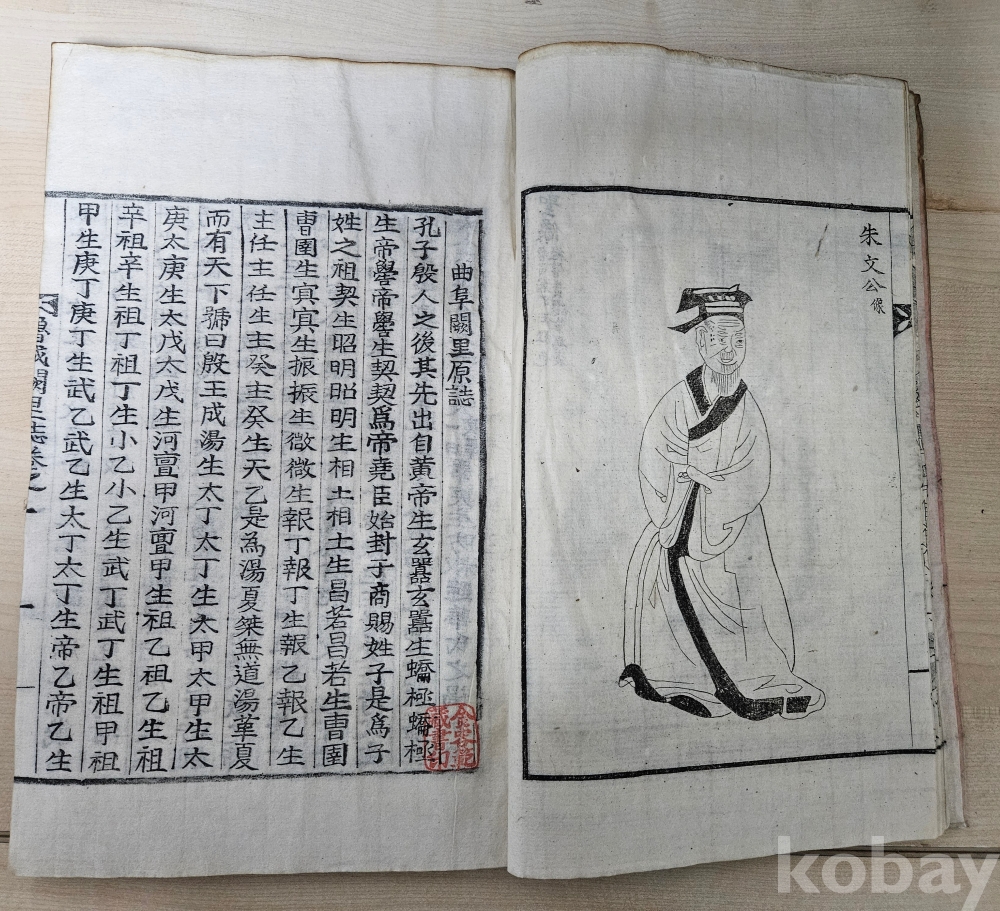 朱文公像
曲阜闕里原誌
孔子殷人之後其先出自黃帝生玄囂玄囂生蟜極蟜極
生帝嚳帝嚳生契契爲帝堯臣始封于商賜姓子是爲子
姓之祖契生昭明昭明生相土相土生昌若昌若生曹圉
曹圉生㝠㝠生振振生微微生報丁報丁生報乙報乙生
主任主任生主癸主癸生天乙是為湯夏桀無道湯革夏
而有天下號曰殷王成湯生太丁太丁生太甲太甲生太
庚太庚生太戊太戊生河亶甲河亶甲生祖乙祖乙生祖
辛祖辛生祖丁祖丁生小乙小乙生武丁武丁生祖甲祖
甲生庚丁庚丁生武乙武乙生太丁太丁生帝乙帝乙生
闕里誌卷之一
藏書印
kobay